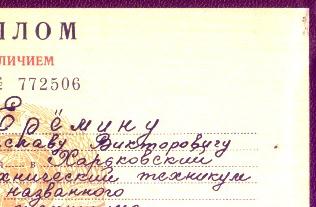 ПЛОМ
ЛИЧИЕМ
№ 772506
Ерёмину
славу Викторовичу
в Харьковский
хнический техникум
названного